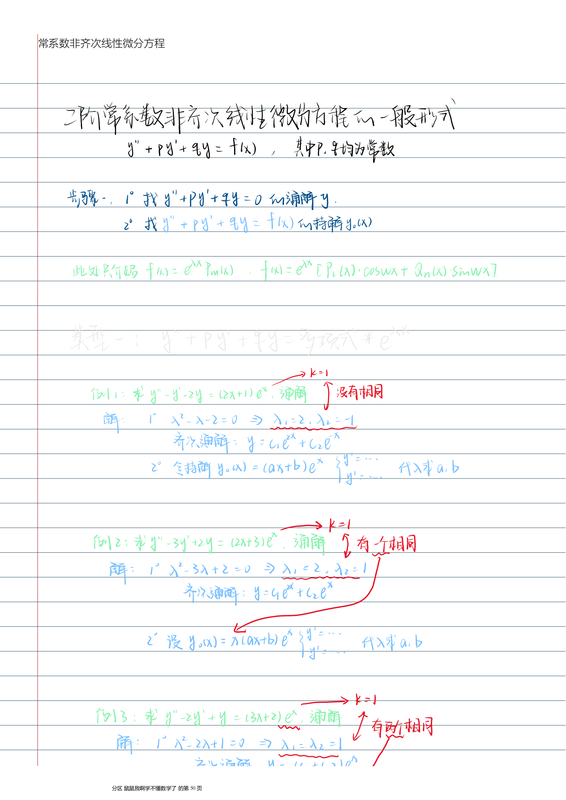 常系数非齐次线性微分方程
二阶常系数非齐次线性微分方程的一般形式
y''+py'+qy=f(x) , 其中p,q均为常数
步骤一、1° 找 y''+py'+qy=0 的通解 y.
2° 找 y''+py'+qy=f(x) 的特解 y₀(x)
此处只介绍 f(x)=e^{λx}Pm(x) , f(x)=e^{λx}[P_l(x)·coswx+Q_n(x)sinwx]
类型一: y''+py'+qy=多项式*e^{λx}
k=1
例1: 求 y''-y'-2y=(2x+1)e^x 通解 没有相同
解: 1° λ²-λ-2=0 ⇒ λ₁=2,λ₂=-1
齐次通解: y=C₁e^{2x}+C₂e^{-x}
2° 令特解 y₀(x)=(ax+b)e^x {y'=... y''=... 代入求a,b
k=1
例2: 求 y''-3y'+2y=(2x+3)e^x 通解 有一个相同
解: 1° λ²-3λ+2=0 ⇒ λ₁=2,λ₂=1
齐次通解: y=C₁e^{2x}+C₂e^x
2° 设 y₀(x)=x(ax+b)e^x {y'=... y''=... 代入求a,b
k=1
例3: 求 y''-2y'+y=(3x+2)e^x 通解 有两个相同
解: 1° λ²-2λ+1=0 ⇒ λ₁=λ₂=1
分区 鼠鼠我啊学不懂数学了 的第 50 页